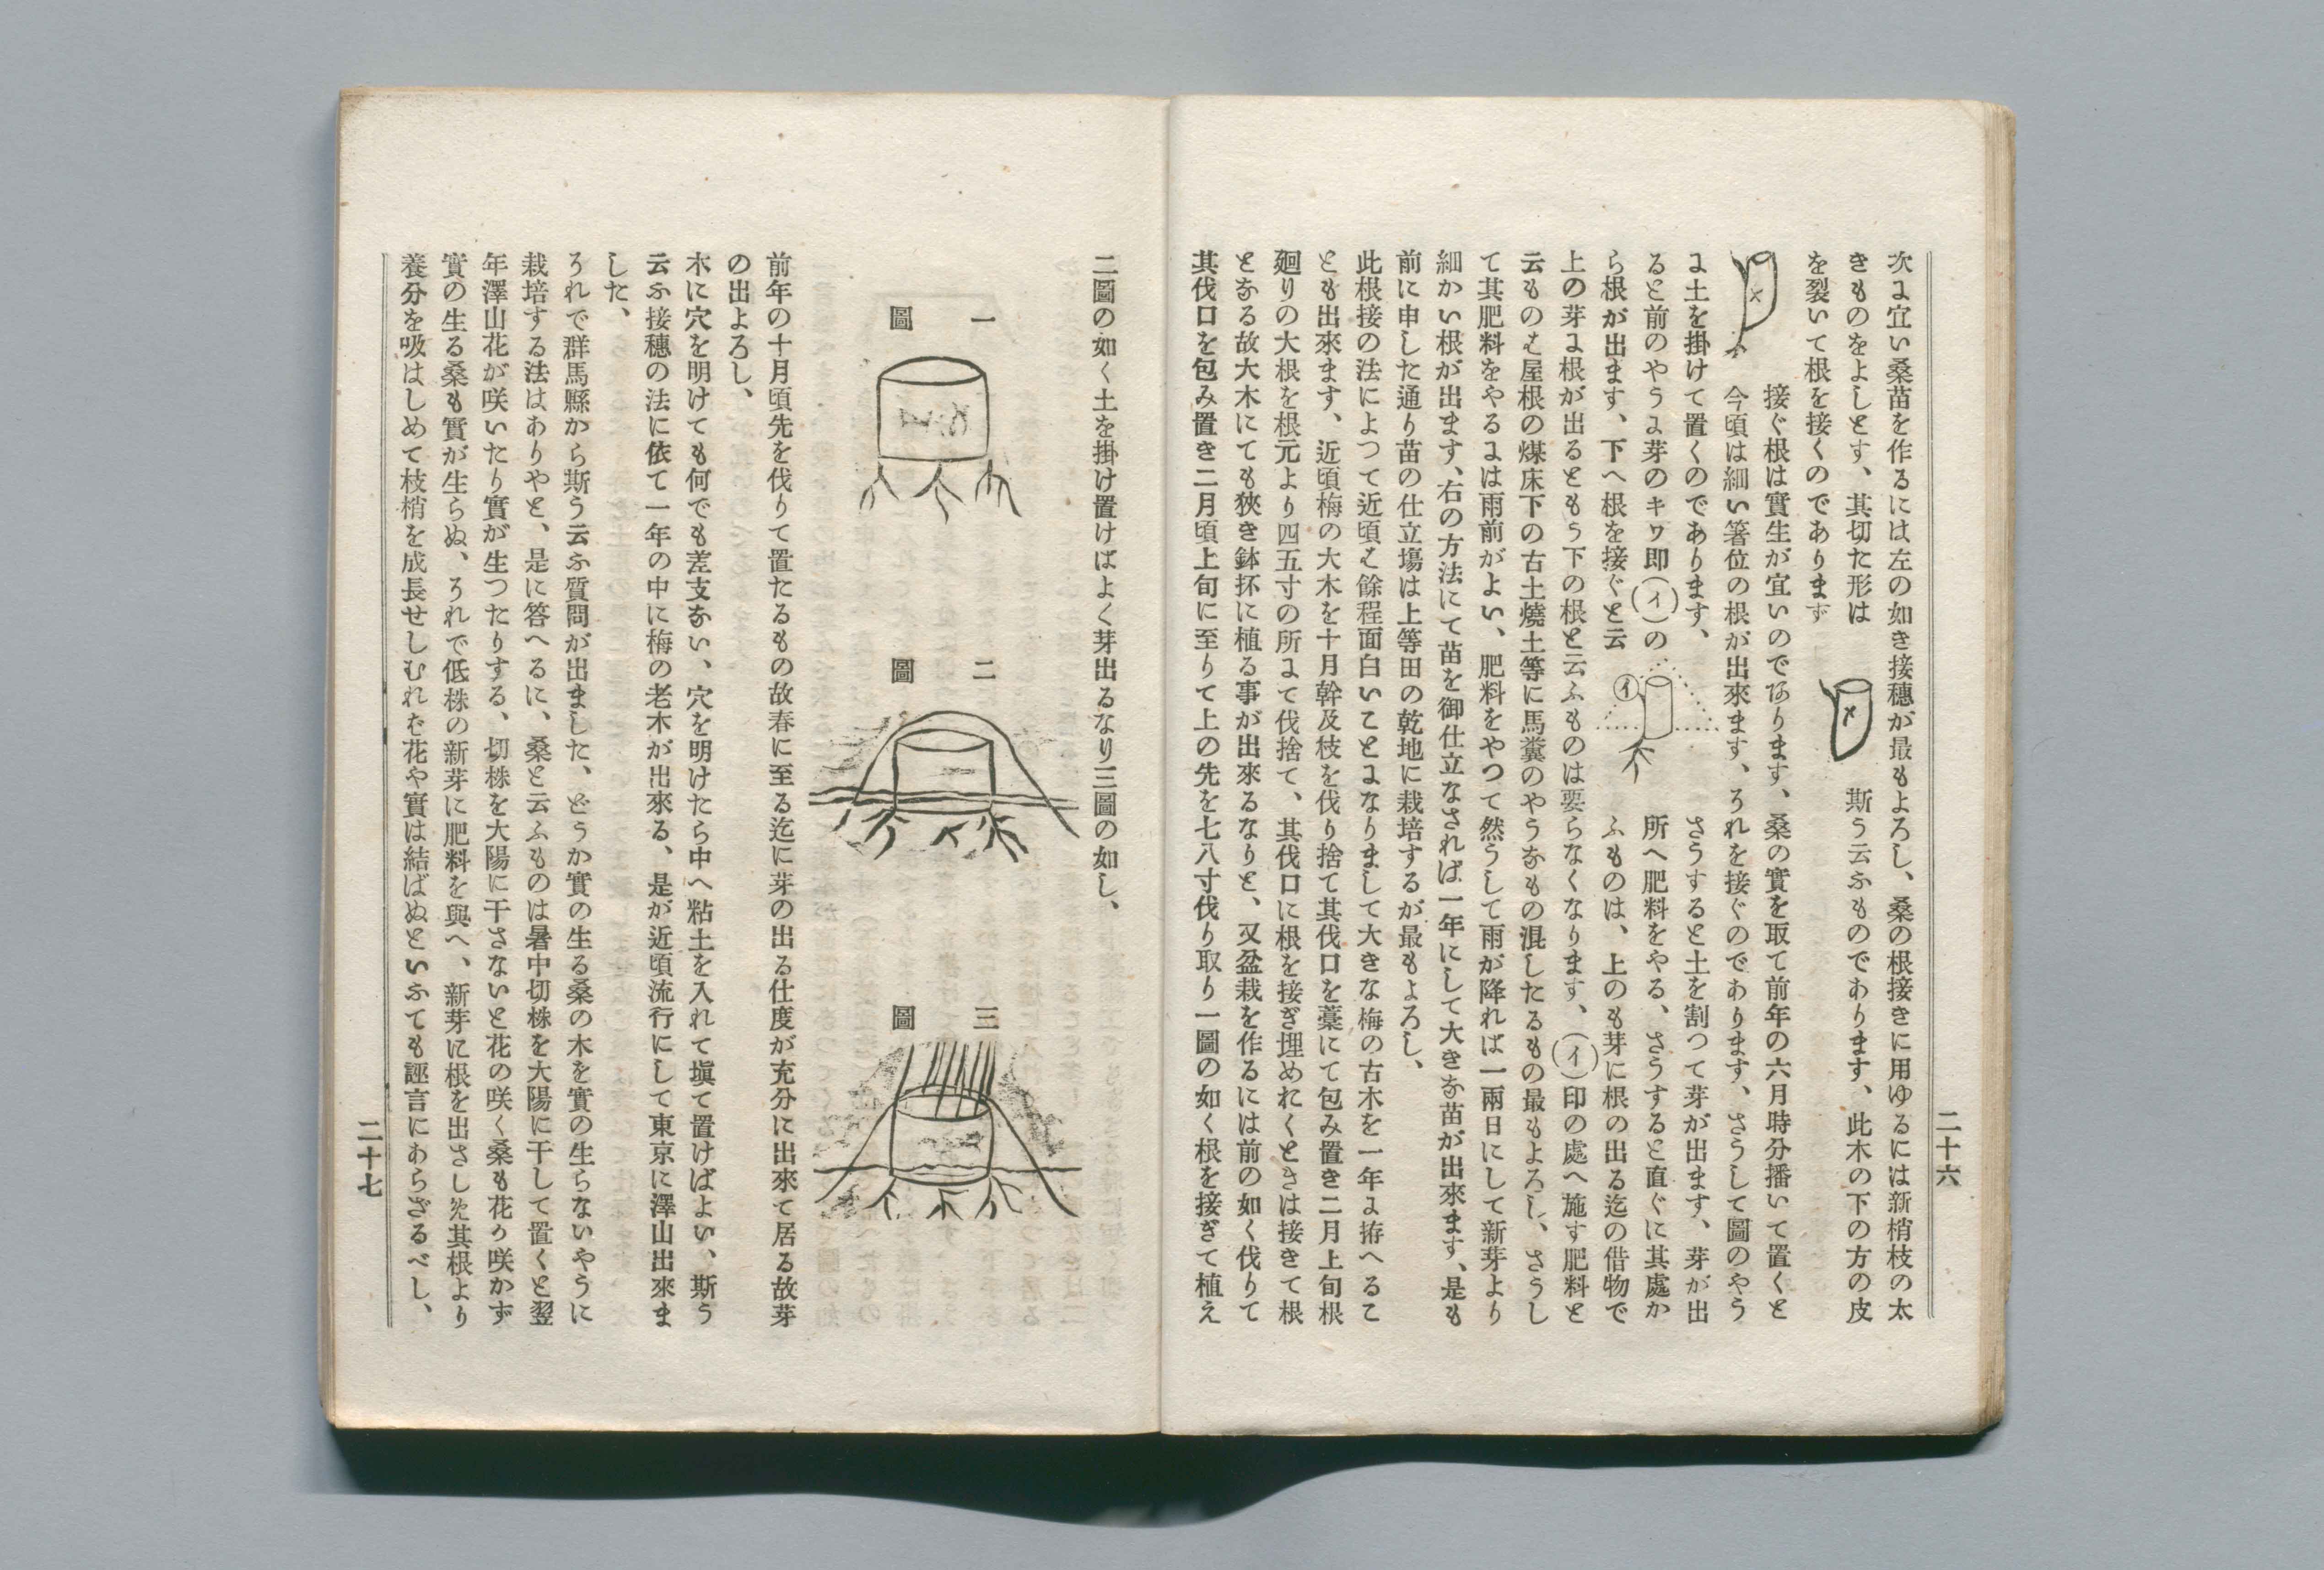 二十六
次に宜い桑苗を作るには左の如き接穗が最もよろし、桑の根接きに用ゆるには新梢枝の太
きものをよしとす、其切た形は
斯う云ふものであります、此木の下の方の皮
を裂いて根を接くのであります
接ぐ根は實生が宜いのであります、桑の實を取て前年の六月時分播いて置くと
今頃は細い箸位の根が出來ます、それを接ぐのであります、さうして圖のやう
に土を掛けて置くのであります、
さうすると土を割つて芽が出ます、芽が出
ると前のやうに芽のキワ即(イ)の
所へ肥料をやる、さうすると直ぐに其處か
ら根が出ます、下へ根を接ぐと云
イ
ふものは、上のも芽に根の出る迄の借物で
上の芽に根が出るともう下の根と云ふものは要らなくなります、(イ)印の處へ施す肥料と
云ものは屋根の煤床下の古土燒土等に馬糞のやうなもの混したるもの最もよろし、さうし
て其肥料をやるには雨前がよい、肥料をやつて然うして雨が降れば一兩日にして新芽より
細かい根が出ます、右の方法にて苗を御仕立なされば一年にして大きな苗が出來ます、是も
前に申した通り苗の仕立塲は上等田の乾地に栽培するが最もよろし、
此根接の法によつて近頃は餘程面白いことになりまして大きな梅の古木を一年に拵へるこ
とも出來ます、近頃梅の大木を十月幹及枝を伐り捨て其伐口を藁にて包み置き二月上旬根
廻りの大根を根元より四五寸の所にて伐捨て、其伐口に根を接ぎ埋めれくときは接きて根
となる故大木にても狹き鉢抔に植る事が出來るなりと、又盆栽を作るには前の如く伐りて
其伐口を包み置き二月頃上旬に至りて上の先を七八寸伐り取り一圖の如く根を接ぎて植え
二圖の如く土を掛け置けばよく芽出るなり三圖の如し、
一圖
二圖
三圖
前年の十月頃先を伐りて置たるもの故春に至る迄に芽の出る仕度が充分に出來て居る故芽
の出よろし、
木に穴を明けても何でも差支ない、穴を明けたら中へ粘土を入れて塡て置けばよい、斯う
云ふ接穗の法に依て一年の中に梅の老木が出來る、是が近頃流行にして東京に澤山出來ま
した、
それで群馬縣から斯う云ふ質問が出ました、どうか實の生る桑の木を實の生らないやうに
栽培する法はありやと、是に答へるに、桑と云ふものは暑中切株を大陽に干して置くと翌
年澤山花が咲いたり實が生つたりする、切株を大陽に干さないと花の咲く桑も花り咲かず
實の生る桑も實が生らぬ、それで低株の新芽に肥料を與へ、新芽に根を出さしため其根より
養分を吸はしめて枝梢を成長せしむれば花や實は結ばぬといふても誣言にあらざるべし、
二十七